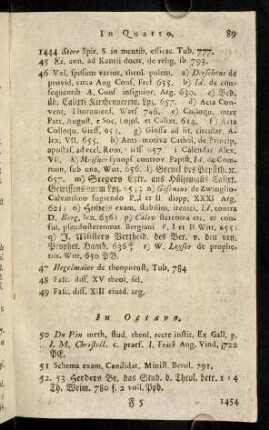 In Quarto. 89
1444 Storr Spir. S. in mentib. efficac. Tub. 777.
45 Ei. ann. ad Kantii doctr. de relig. ib 793.
46 Vol. spissum varior. theol. polem. a) Dreschens de
provid. circa Aug Conf. Frcf 655. b) Id. de con-
sequentiis A. Conf insignior. Arg. 630. c) Bed.
ub. Calixti Kirchenverein. Lpz. 657. d) Acta Con-
vent. Thoruniens. Warf 746. e) Colloqu. inter
Patr. August, e Soc. Lojol. et Calixt. 614. f) Acta
Colloqu. Giess. 653. g) Glossa ad lit. circular. A-
lex. VII. 655. h) Anti-motiva Cathol. de Princip.
apostaf. ad eccl. Rom. 1 Eiff 057. i) Calendar. Alex.
VII. k) Meisner synopf controv Papist. Id. de Com-
mun. sub una, Witt. 656. l) Greuel des Papsth. x.
657. m) Seegers Errt. aus Dülzemans Calixt.
Gewissenswurm Lpz. 653. n) Gisenius de Zwinglio-
Calvinismo fugiendo P. I et II. dispp. XXXI Arg.
621. o) Ejusdem exam. stabilim. irenici. Id. contra
D. Berg, len. 636. p) Calov stremma etc. et con-
fus. pseudosterremat. Bergiani P. I et II Witt. 655.
q) J. Müllers Vertheid. des Ber. v. den neu.
Prophet. Hamb. 636. r) W. Leyser de prophe-
tiis. Witt, 650 PB.
47 Hegelmaier de theopneust. Tub. 784
48 Fasc. diss. XV theol. sel.
49 Fasc. diss. XIII eiusd. arg.
In Octavo.
50 Du Pin meth. stud. theol. recte instit. Ex Gall. p.
I. M. Christell. c. praef. I. Frick Aug. Vind. 1722
PE.
51 Schema exam. Candidat. Minist. Berol. 791.
52. 53 Herders Br. das Stud. d. Theol. betr. 1-4
Th. Weim. 780 f. 2 voll. Ppb.
F 5 1454